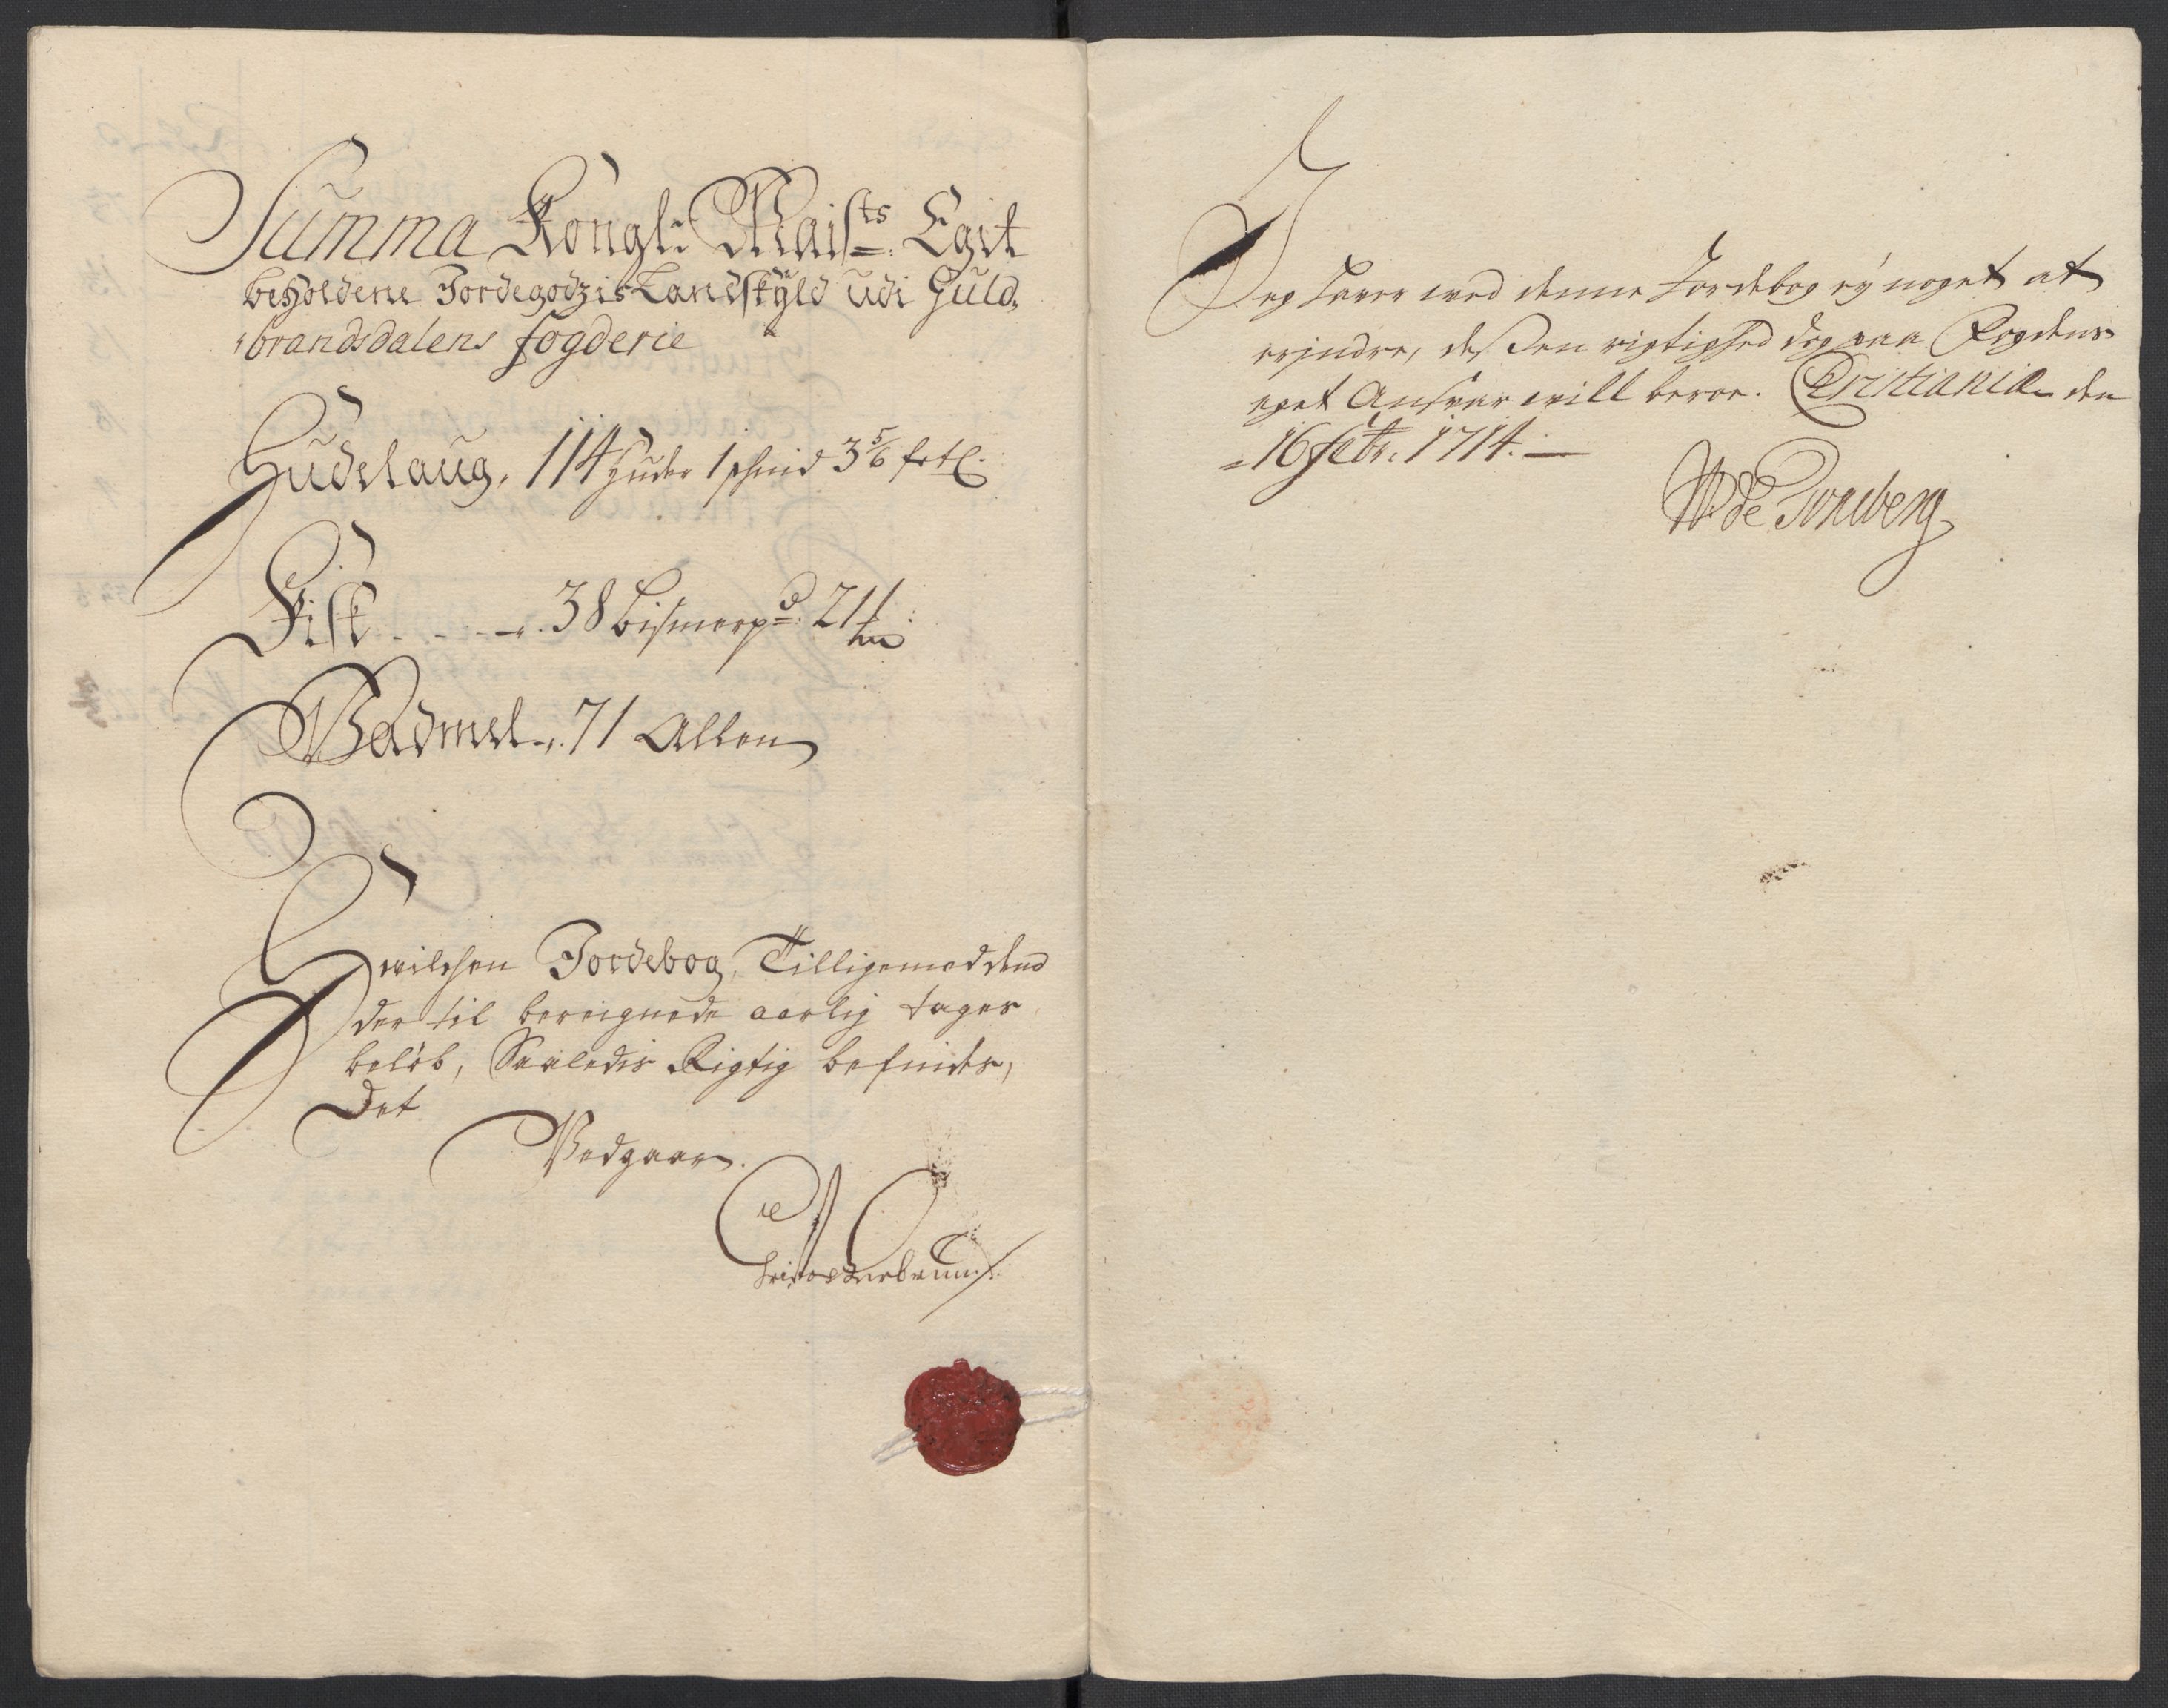 Summa Kongl: Maists: Egit
beholdene Jordegodzis Landskÿld udi Guld,
brandsdalens fogderie
Hudelaug, 114 Huder 1 schind 3 5/6 
Fisk - - - 38 Bismerpd: 21
Wadmel - 71 Allen
Hvilchen Jordebog, Tilligemed dend
der til bereignede aarlig tages
beløb, Saaledis Rigtig befindes,
Det
Vedgaar.
Jeg haver ved denne Jordebog eÿ noget at
erindre, deßen rigtighed dog paa Fogdens
eget Ansvar will beroe. Cristiania den
16 Febr. 1714. —